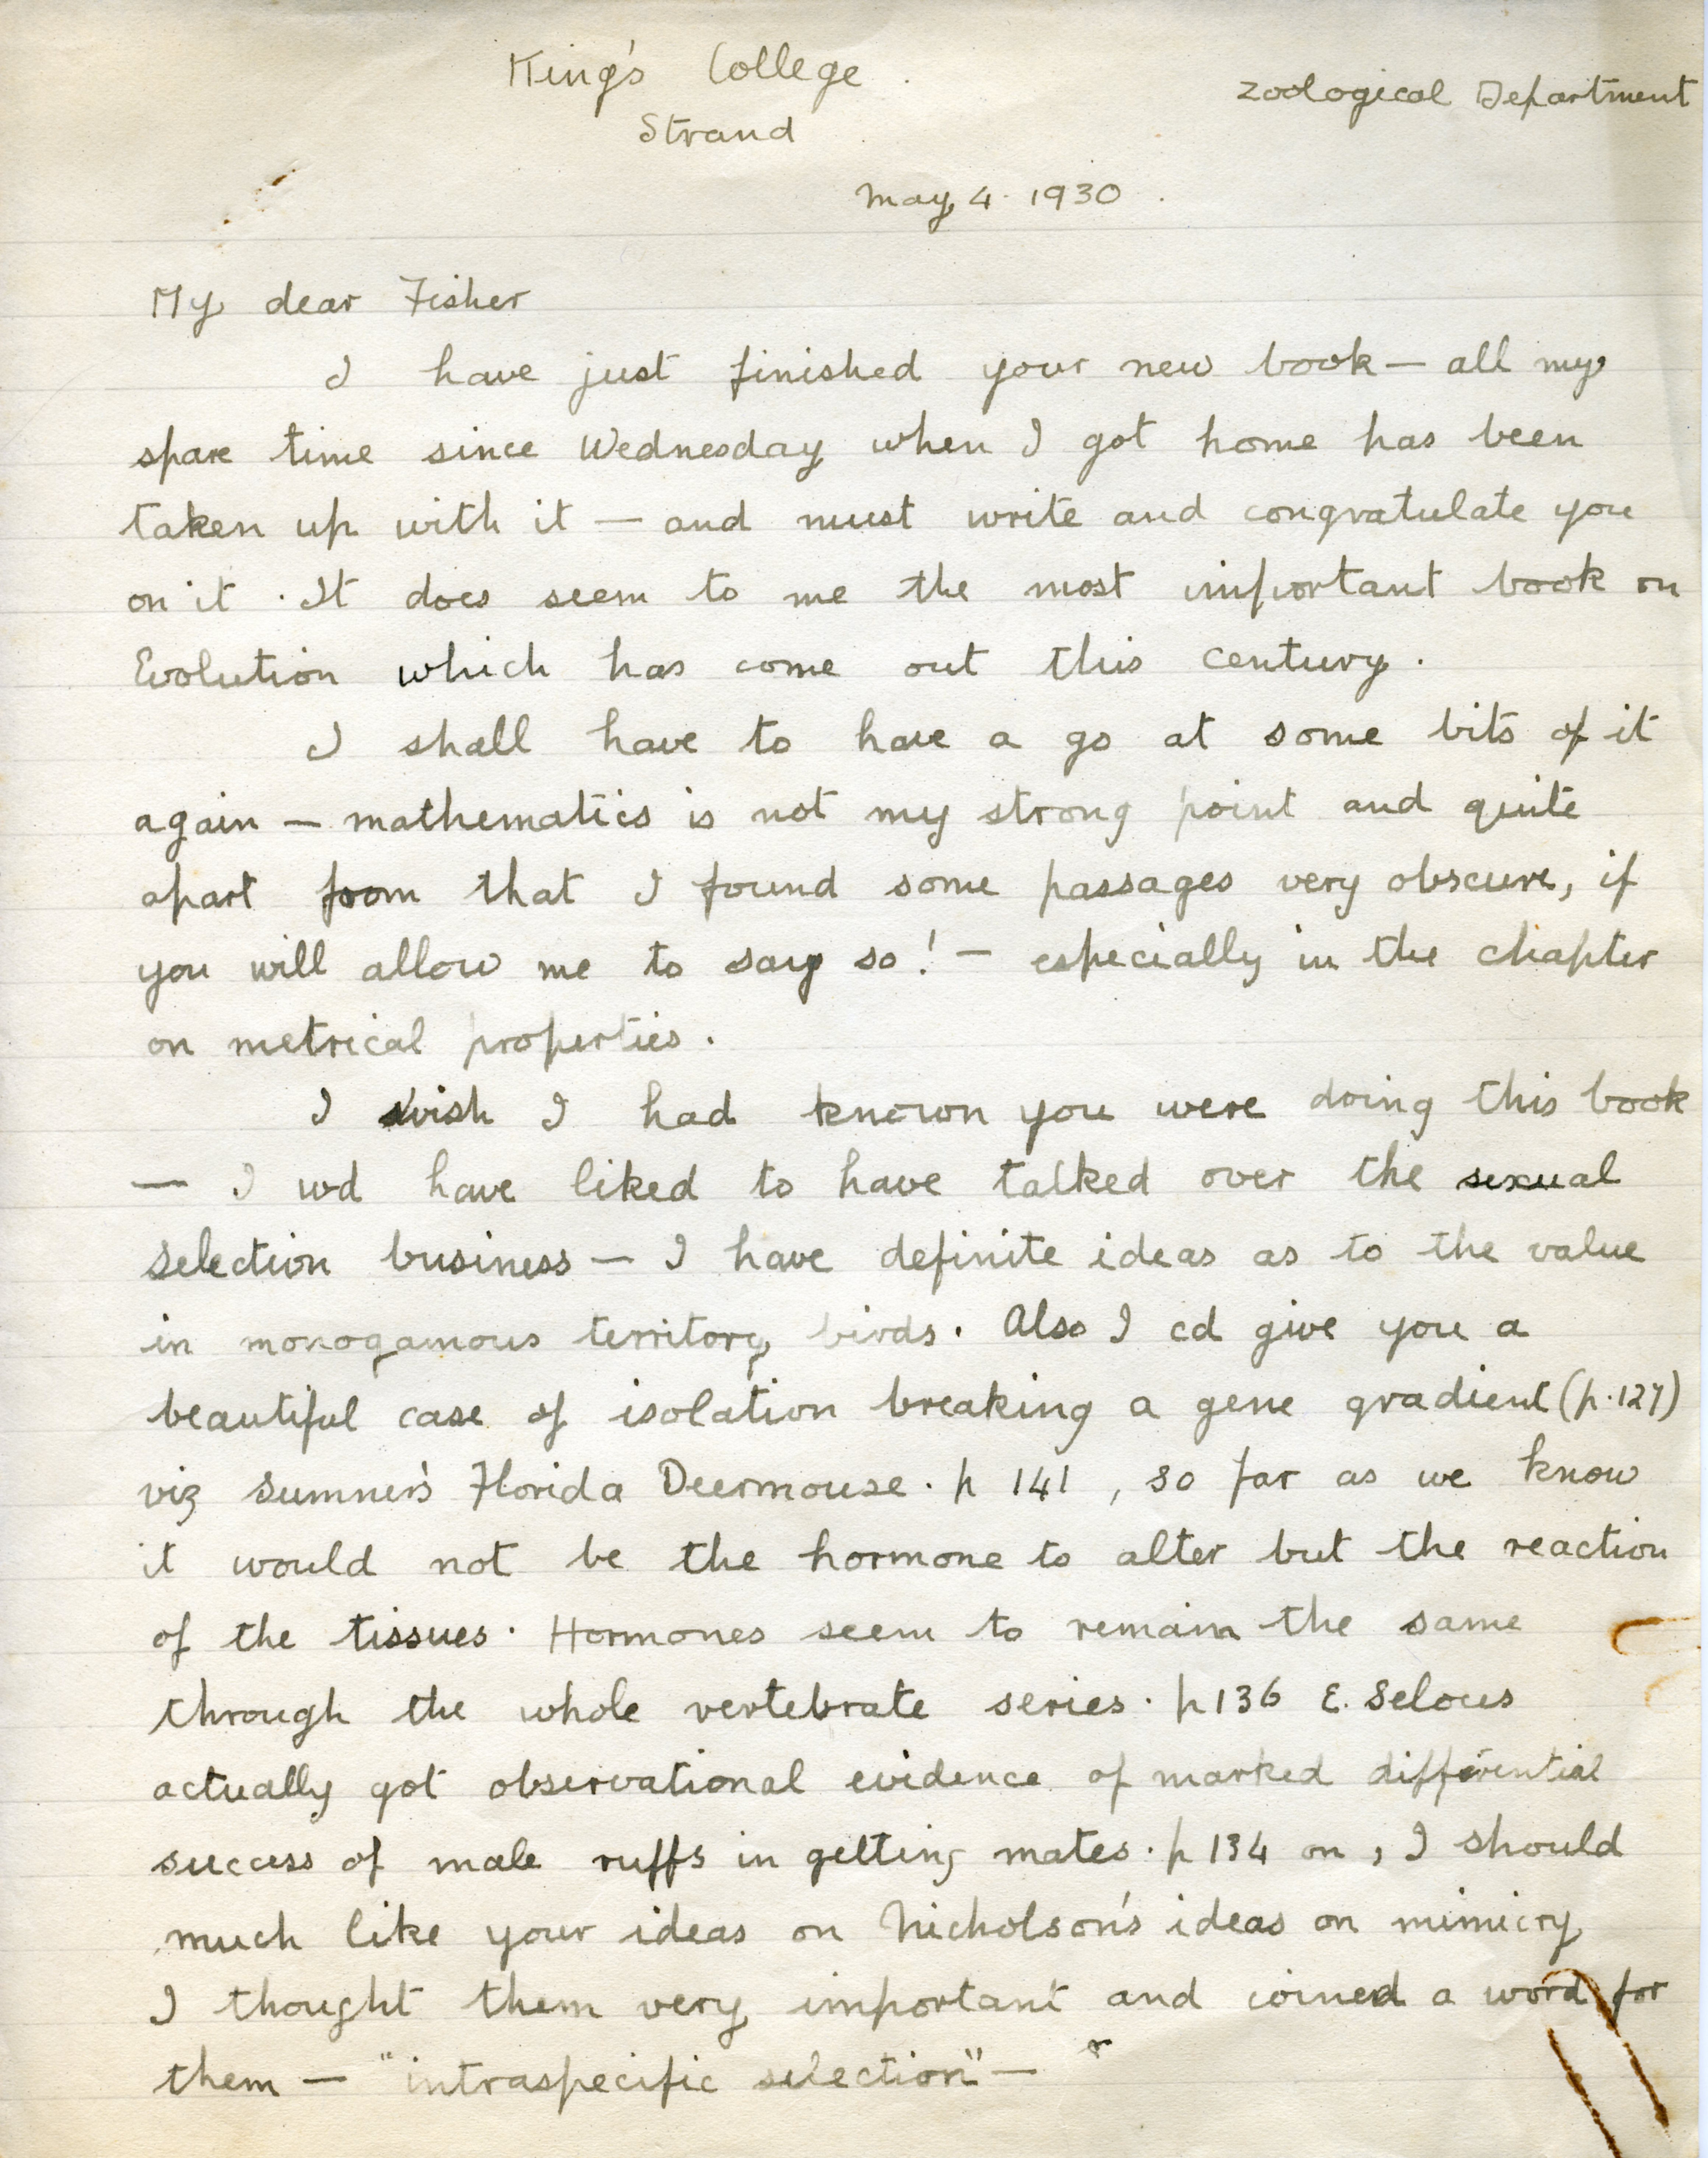 King's College.
Zoological Department
Strand
May 4. 1930.
My dear Fisher
I have just finished your new book — all my
spare time since Wednesday when I got home has been
taken up with it — and must write and congratulate you
on it. It does seem to me the most important book on
Evolution which has come out this century.
I shall have to have a go at some bits of it
again — mathematics is not my strong point and quite
apart from that I found some passages very obscure, if
you will allow me to say so! — especially in the chapter
on metrical properties.
I wish I had known you were doing this book
— I wd have liked to have talked over the sexual
selection business — I have definite ideas as to the value
in monogamous territory birds. Also I cd give you a
beautiful case of isolation breaking a gene gradient (p.127)
viz Sumner's Florida Deermouse. p 141, so far as we know
it would not be the hormone to alter but the reaction
of the tissues. Hormones seem to remain the same
through the whole vertebrate series. p 136 E. Selous
actually got observational evidence of marked differential
success of male ruffs in getting mates. p 134 on, I should
much like your ideas on Nicholson's ideas on mimicry
I thought them very important and coined a word for
them — "intraspecific selection" —